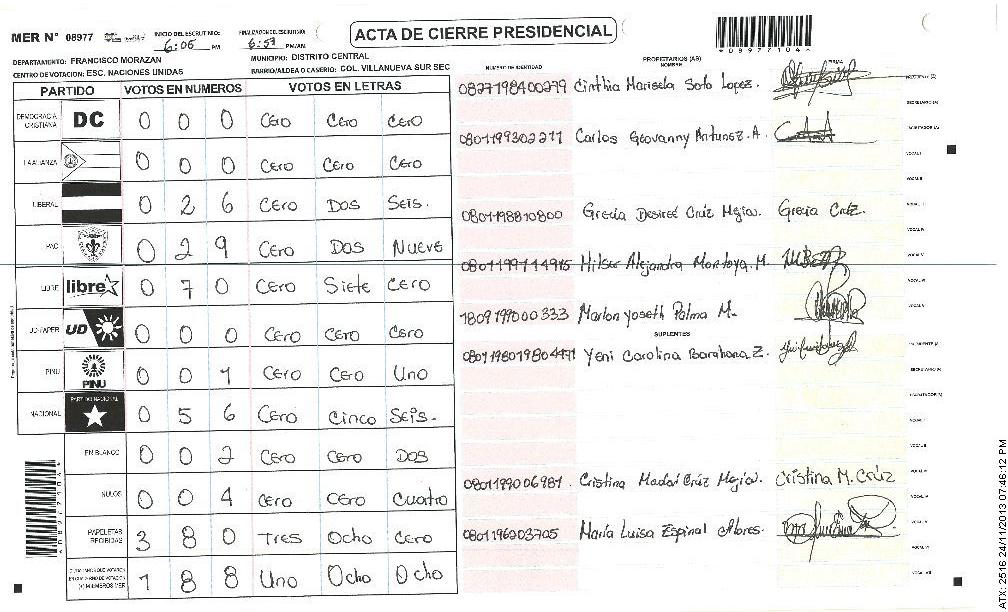 MER N° 08977
INICIO DEL ESCRUTINIO: 6:05 PM
FINALIZACION DEL ESCRUTINIO: 6:57 PM/AM
ACTA DE CIERRE PRESIDENCIAL
DEPARTAMENTO: FRANCISCO MORAZAN
MUNICIPIO: DISTRITO CENTRAL
CENTRO DE VOTACION: ESC. NACIONES UNIDAS
BARRIO/ALDEA O CASERIO: COL. VILLANUEVA SUR SEC
PARTIDO VOTOS EN NUMEROS VOTOS EN LETRAS
DEMOCRACIA CRISTIANA DC 0 0 0 Cero Cero Cero
LA ALIANZA 0 0 0 Cero Cero Cero
LIBERAL 0 2 6 Cero Dos Seis.
PAC 0 2 9 Cero Dos Nueve
LIBRE libre 0 7 0 Cero Siete Cero
UD-FAPER UD 0 0 0 Cero Cero Cero
PINU PINU 0 0 1 Cero Cero Uno
NACIONAL PARTIDO NACIONAL 0 5 6 Cero Cinco Seis.
EN BLANCO 0 0 2 Cero Cero Dos
NULOS 0 0 4 Cero Cero Cuatro
PAPELETAS RECIBIDAS 3 8 0 Tres Ocho Cero
1 8 8 Uno Ocho Ocho
NUMERO DE IDENTIDAD PROPIETARIOS (AS) NOMBRE FIRMA
0827198400279 Cinthia Marisela Soto Lopez.
0801199302211 Carlos Geovanny Antunez. A.
0801198810800 Grecia Desireé Cruz Mejia. Grecia Cruz.
Hilser Alejandra Montoya. M.
1809199000333 Marlon Yoseth Palma M.
SUPLENTES
Yeni Carolina Barahona. Z.
0801199006981. Cristina Madai Cruz Mejia. Cristina M. Crúz
0801196203705 María Luisa Espinal Flores.
*0897721044*
ATX: 2516 24/11/2013 07:46:12 PM